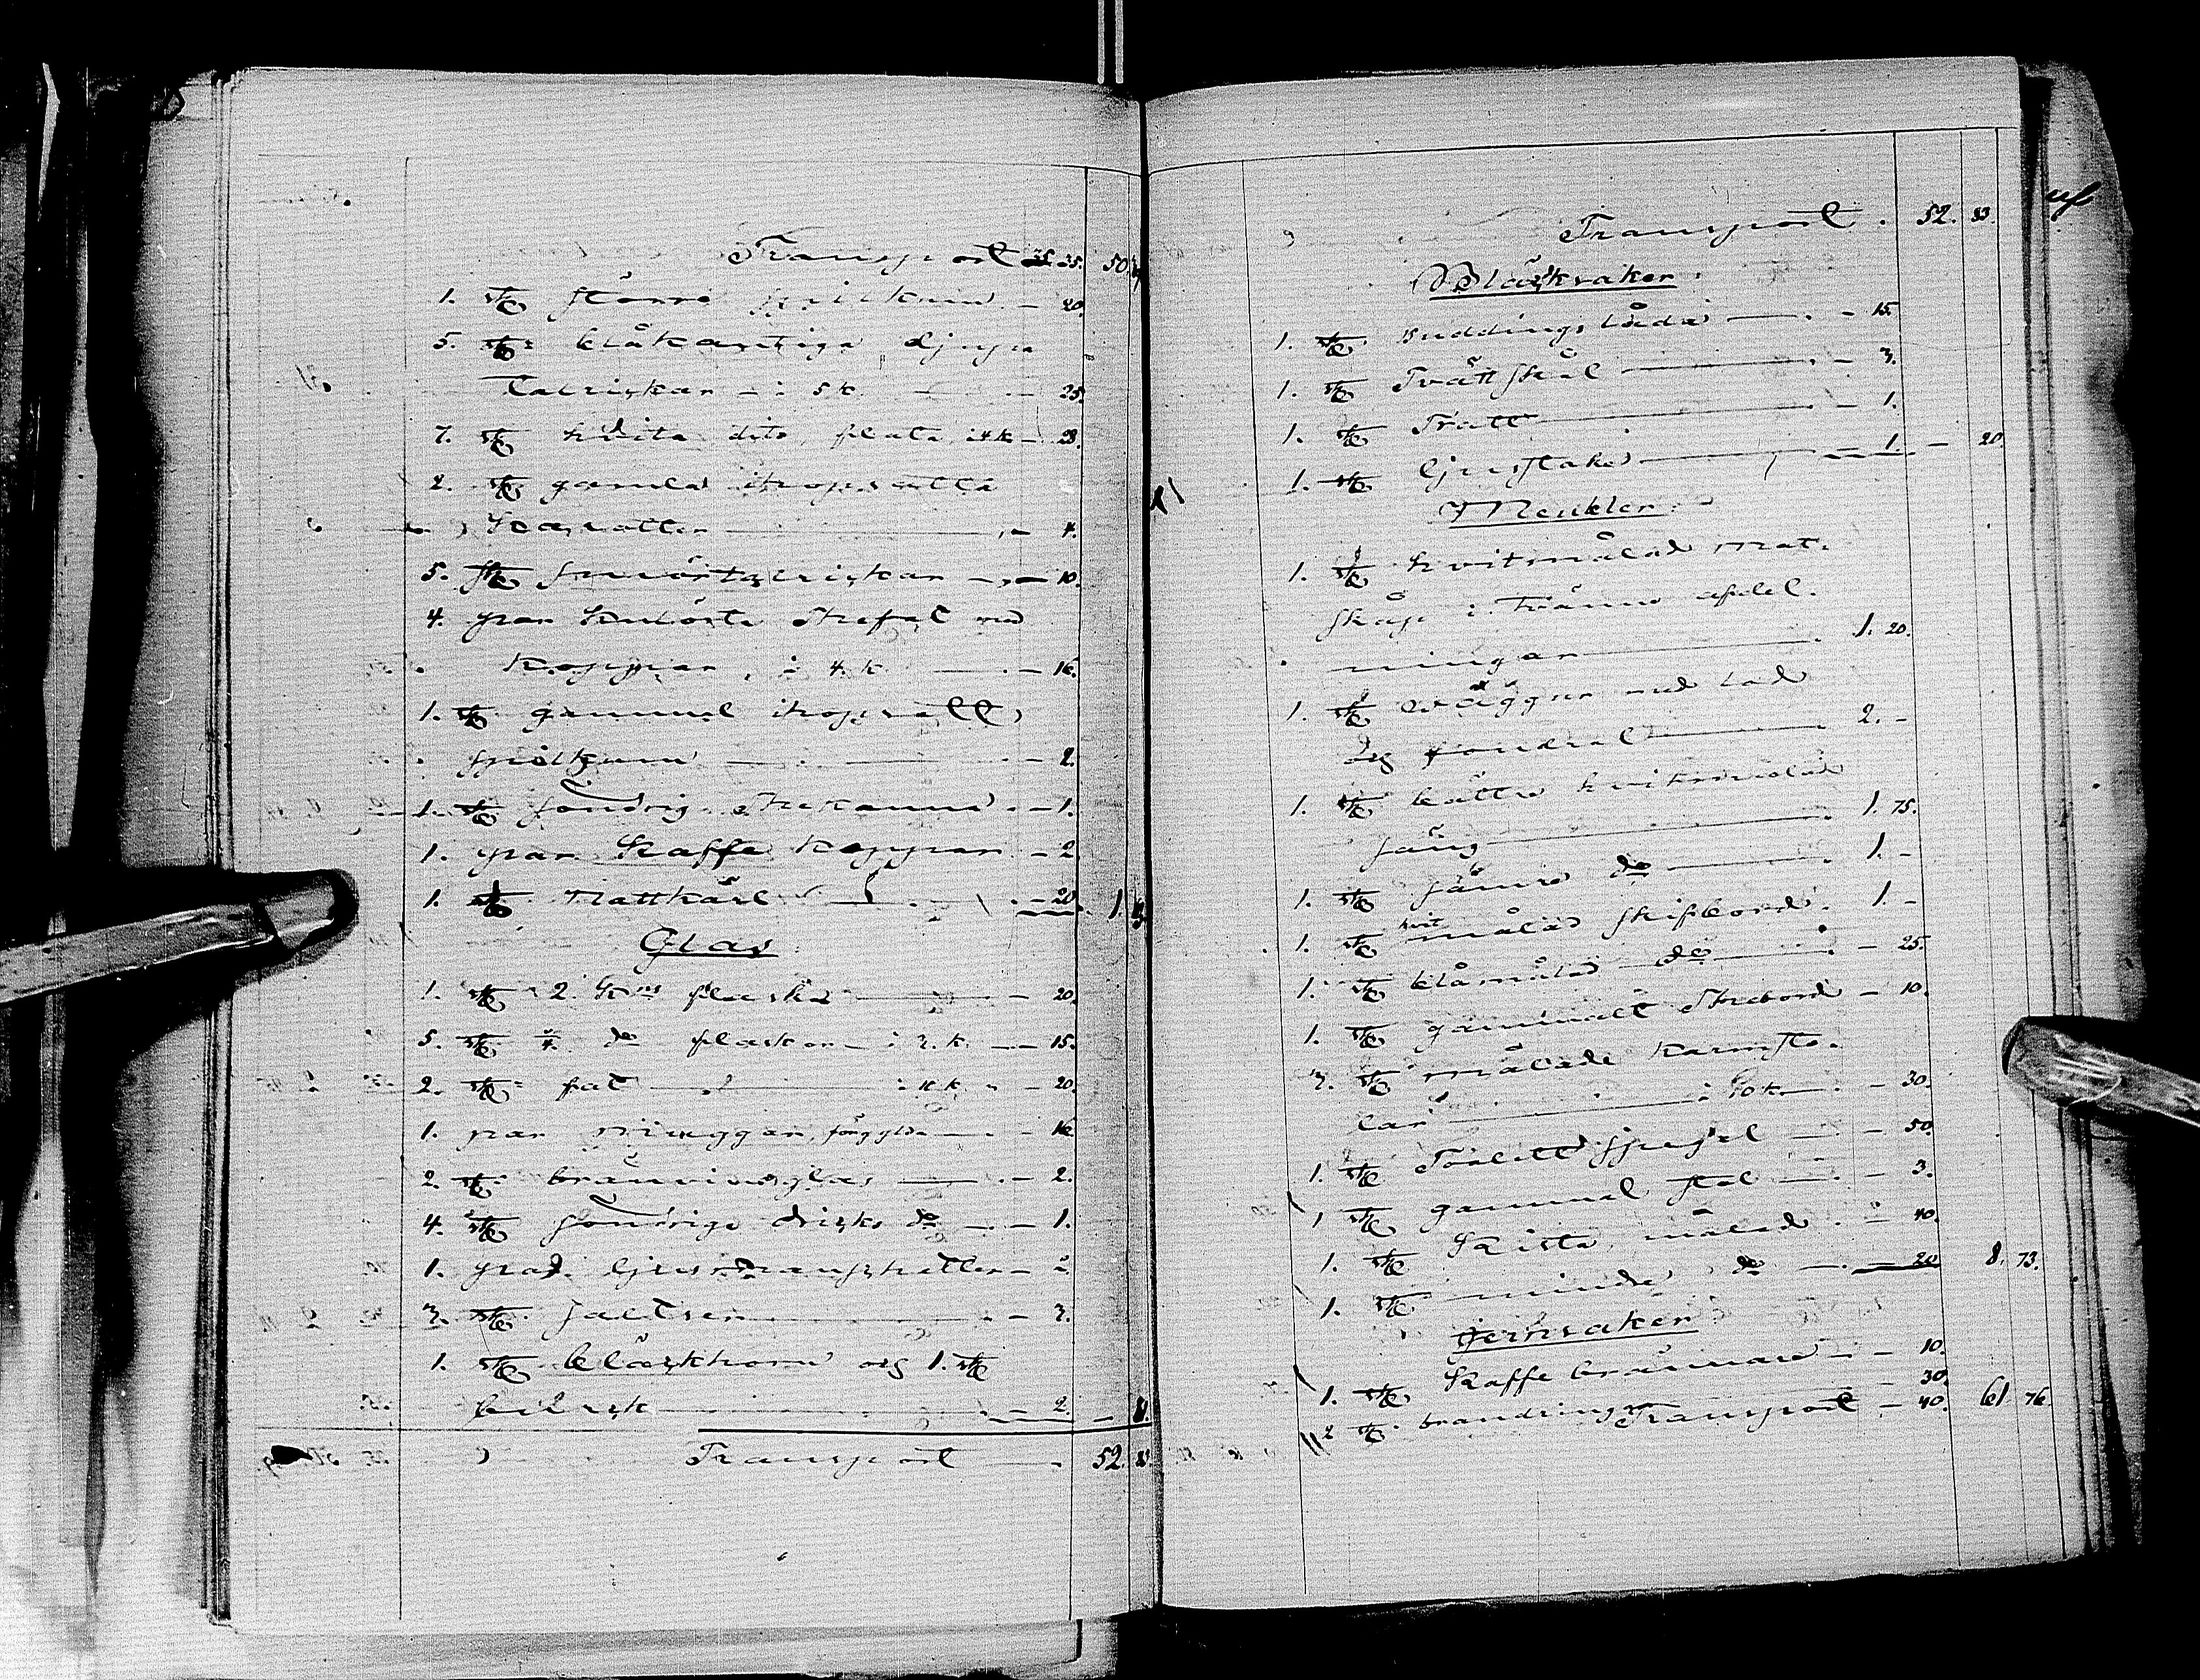 Transport 35. 50.
1. st större spilkum — 20.
5. st: blåkantiga djupa
Talriskar — à 5 k. — 25.
7. st hvita dito, flata à 4 k — 28.
2. st: gamla ihopsatta
4.
5. st smörtalriskar — 10.
4. par kulörta Thefat med
Koppar, à 4. k. — 16.
1. st. gammal ihopsatt
spilkum — 2.
1. st söndrig Thekanna — 1.
1. par Kaffe koppar — 2
1. st. nattkärl — 20. 1.
Glas
1. st 2. K:rs flaska — 20.
5. st do flaskor — à 3. k. — 15.
2. st: fat — à 10 k. — 20.
1. par färgglas — 16
2. st. bränvinsglas — 2.
4. st söndriga dricks do — 1.
1. par ljusmanschetter — 2
3. st. saltser — 3.
1. st. bläckhorn og 1. st
2.
Transport — 52. 83.
Transport. 52. 83.
Bläcksaker:
1. st Puddingslåda — 15.
1. st Tvättskål — 3.
1. st Tratt — 1.
1. st ljusstake — 1. — 20
Meubler:
1. st hvitmålad mat-
skåp i tvänne afdel-
ningar — 1. 20.
1. st väggur med lod
og fondral — 2. -
1. st bättre hvitmålad
säng — 1. 75.
1. st sämre do — 1. -
1. st hvit målad skifbord. 1. -
1. st blåmålad do — 25.
1. st gammalt Thebord — 10.
3. st målade karmsto-
lar — à 10 k. — 30.
1. st Toalettspegel — 50.
1 st gammal stol — 3.
1. st Kista målad. — 40.
1. st mindre do — 20 8. 73.
jernsaker
1. st Kaffe brännare — 10.
2 st. brandringar 30.
Transport — 40. 61. 76.